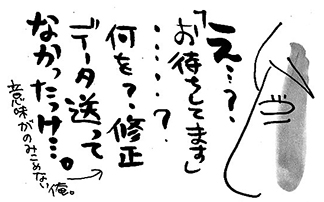 「え…？
お待ちしてます」
……？
何を？修正
データ送って
なかったっけ…。
意味がのみこめない俺。